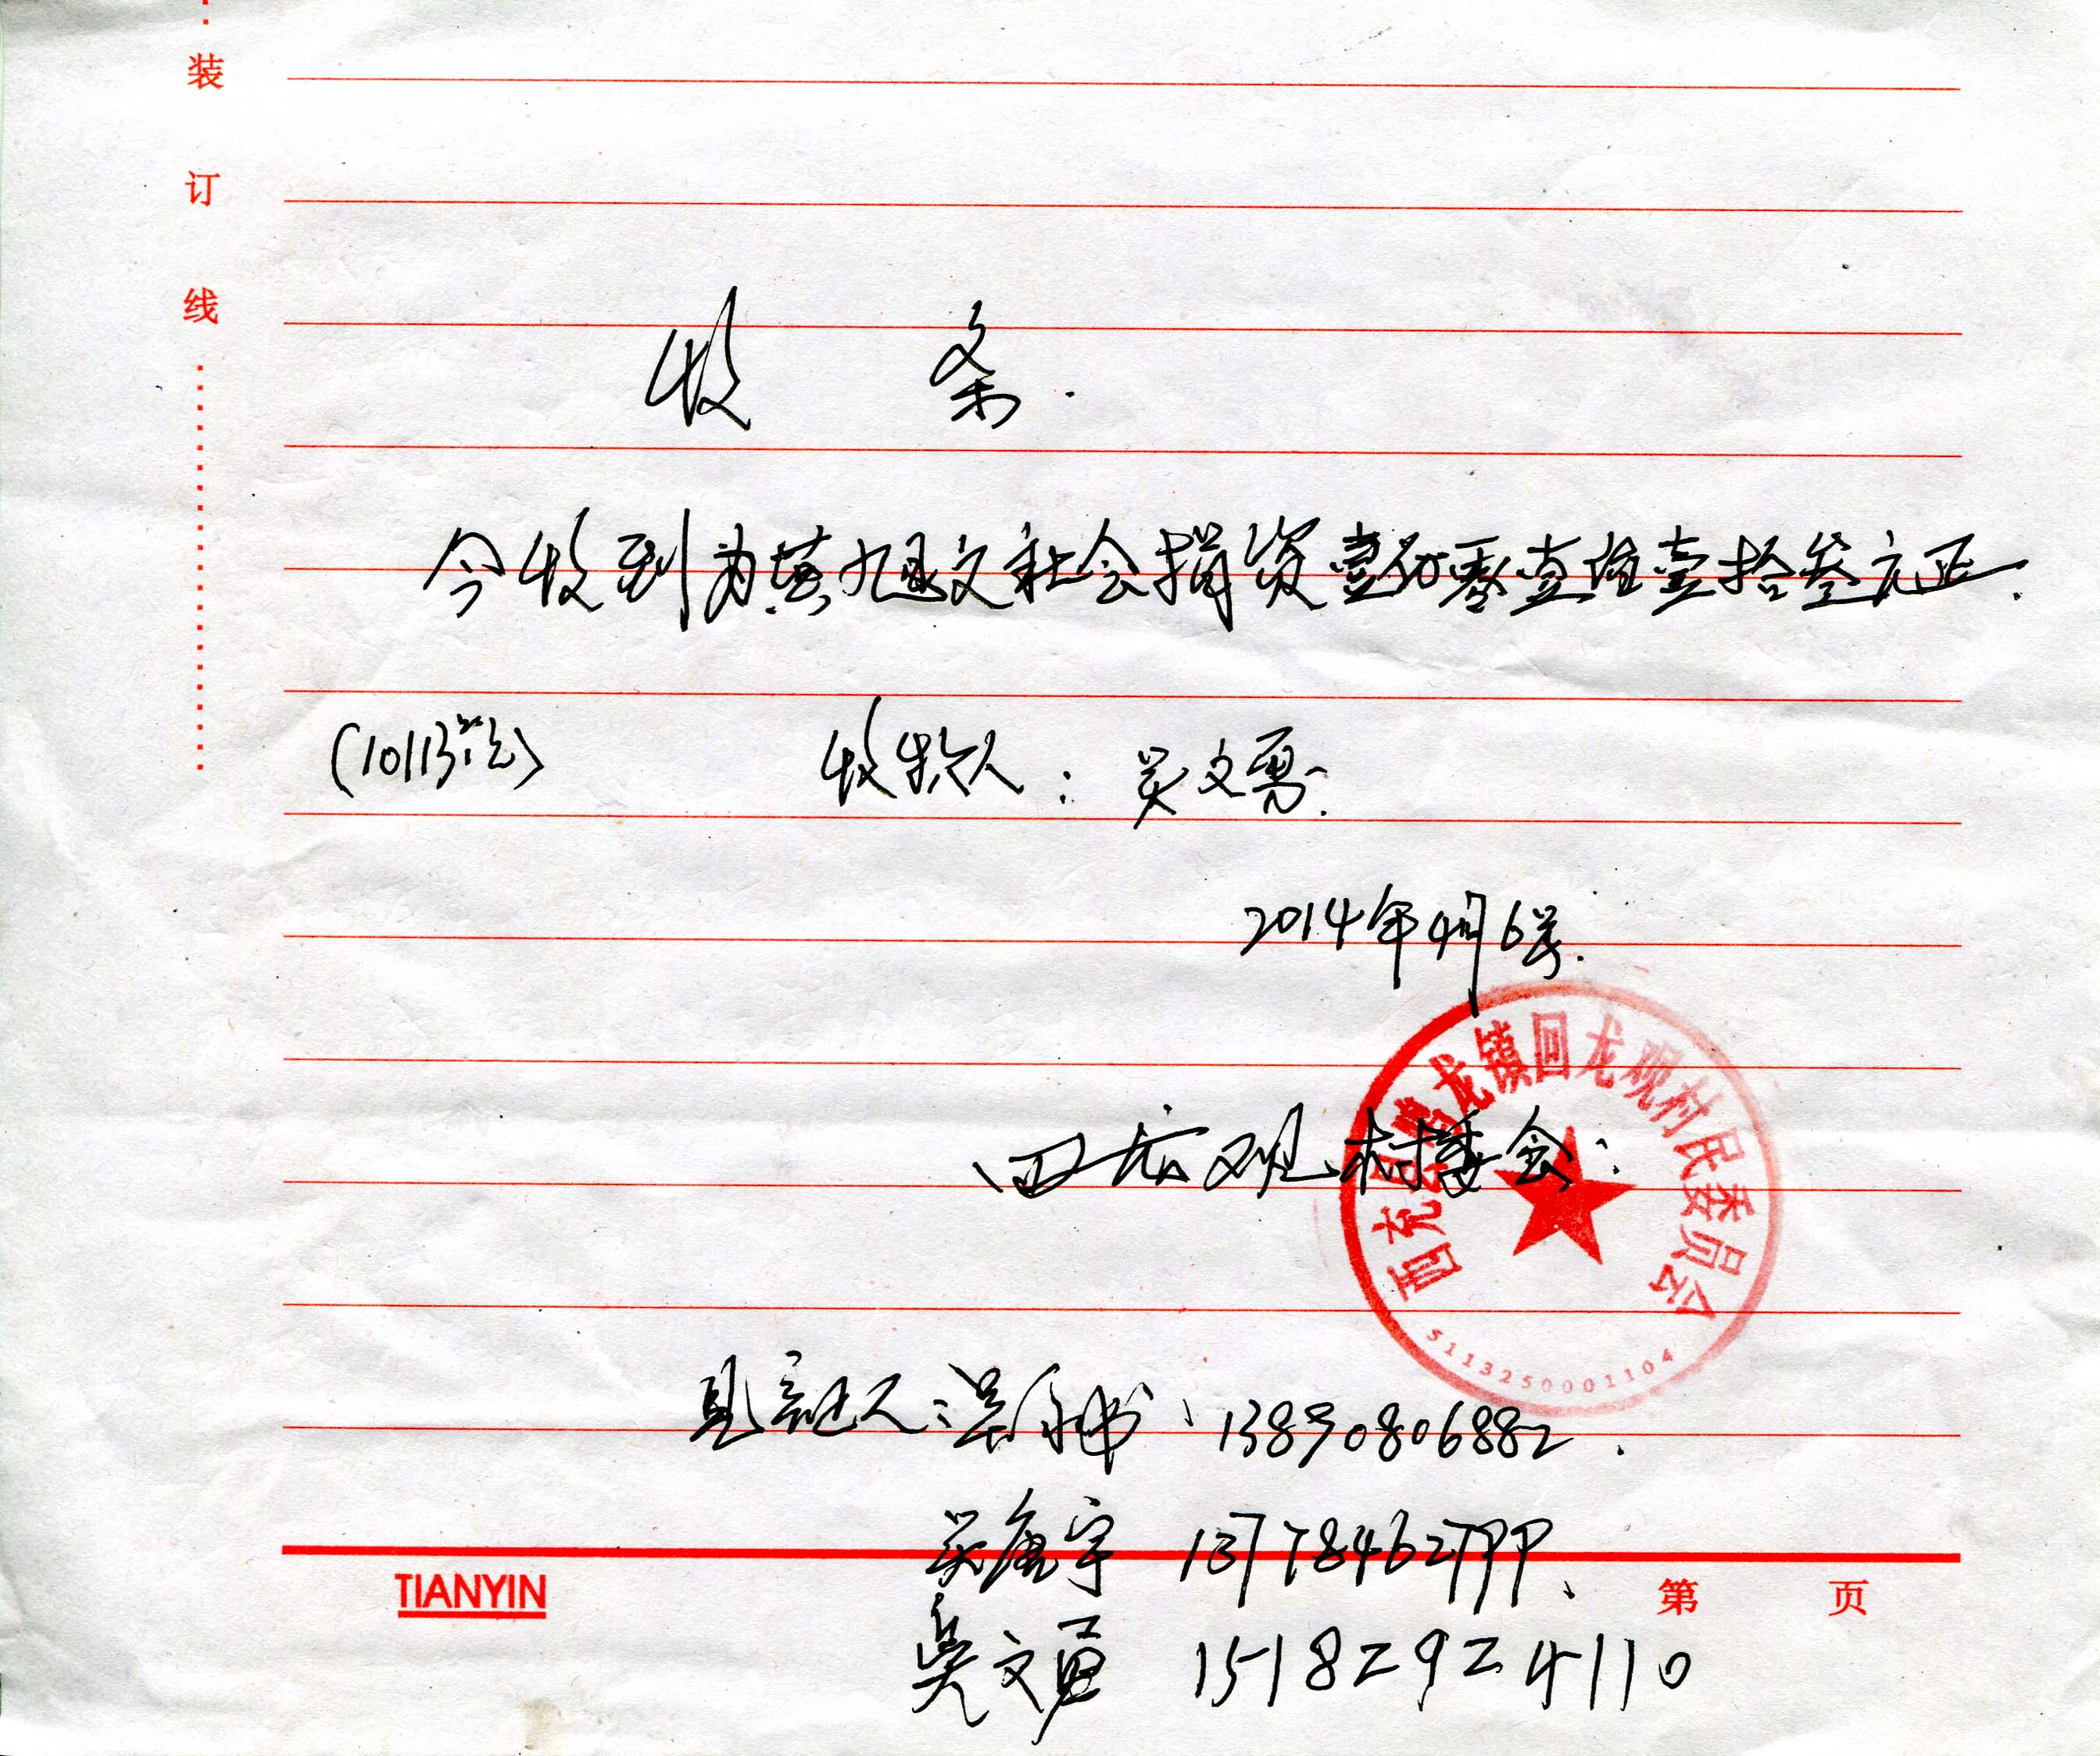 装
订
线
收 条.
今收到为黄旭文社会捐资壹万零壹佰壹拾叁元正.
(10113元) 收款人：吴文勇.
2014年4月6号.
回龙观村委会：
西充县 龙镇回龙观村民委员会
5113250001104
见证人：吴 书、13890806882.
吴 宇 13778462799、
吴文勇 15182924110
TIANYIN
第 页